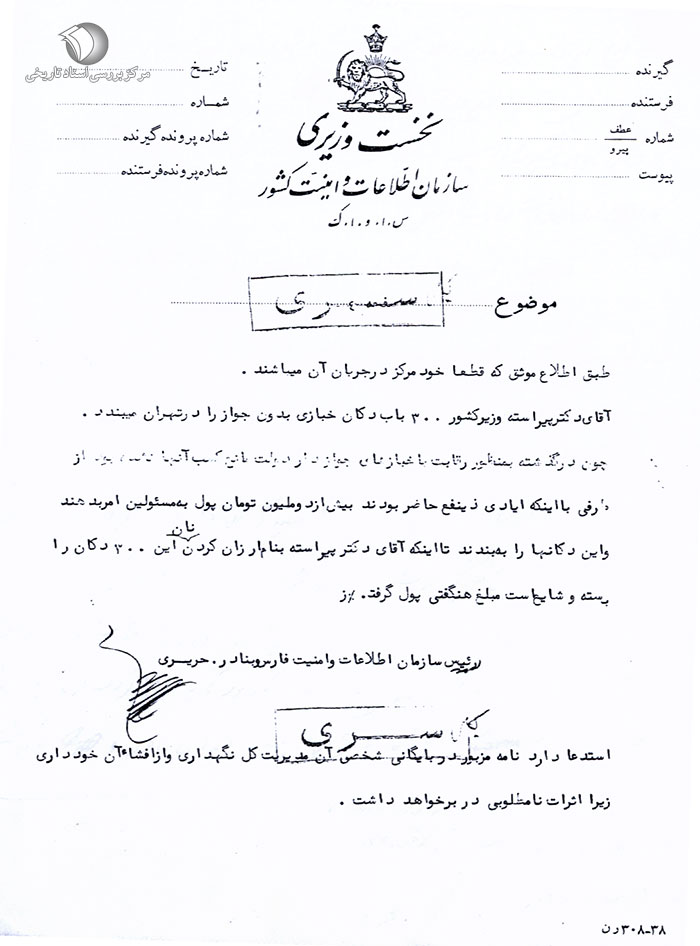 مرکز بررسی اسناد تاریخی
گیرنده
فرستنده
شماره عطف
پیرو
پیوست
نخست وزیری
سازمان اطلاعات و امنیت کشور
س.ا.و.ا.ک
تاریخ
شماره
شماره پرونده گیرنده
شماره پرونده فرستنده
موضوع
سری
طبق اطلاع موثق که قطعا خود مرکز درجریان آن میباشند .
آقای دکتر پیراسته وزیر کشور ۳۰۰ باب دکان خبازی بدون جواز را درتهران میبندد .
چون درگذشته بمنظور رقابت با خبازهای جواز دار دولت مانع کسب آنها نشده بود از
طرفی با اینکه ایادی ذینفع حاضر بودند بیش از دو ملیون تومان پول به مسئولین امر بدهند
واین دکانها را به بندند تا اینکه آقای دکتر پیراسته بنام ارزان کردن نان این ۳۰۰ دکان را
بسته و شایع است مبلغ هنگفتی پول گرفته.
رئیس سازمان اطلاعات وامنیت فارس وبنادر . حریری
سری
استدعا دارد نامه مزبور در بایگانی شخصی آن مدیریت کل نگهداری واز افشاء آن خودداری
زیرا اثرات نامطلوبی در بر خواهد داشت .
۳۰۸-۳۸ رن